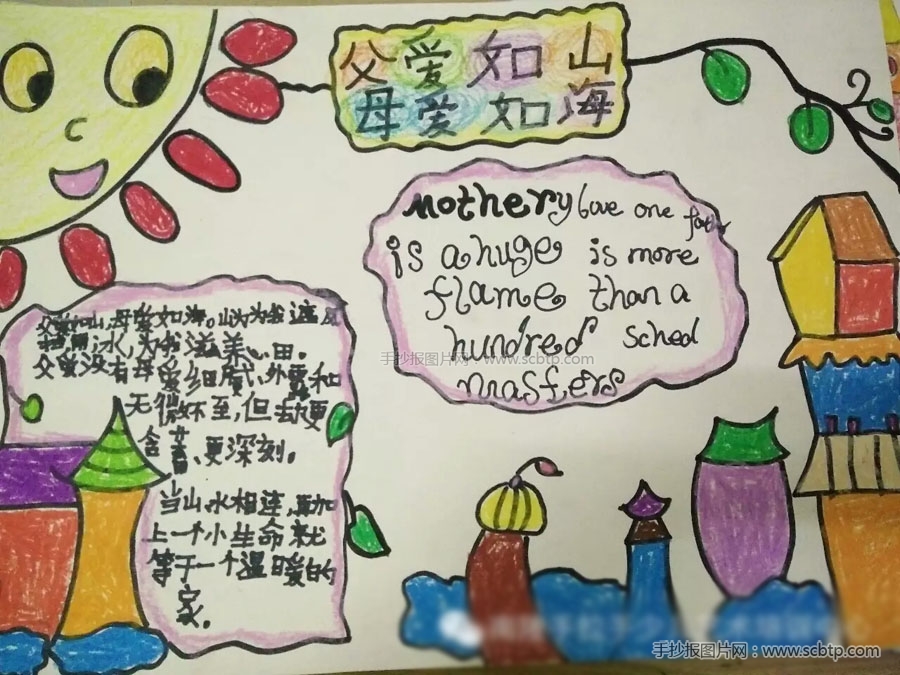 父爱如山
母爱如海
mothery love one fath
is a huge is more
flame than a
hundred sched
masfers
手抄报图片网：www.scbtp.com
父爱如山,母爱如海。山为我遮风
挡雨,水,为我滋养心田。
父爱没有母爱细腻、外露和
无微不至,但却更
含蓄、更深刻。
当山水相连,再加
上一个小生命就
等于一个温暖的
家。
手抄报图片网：www.scbtp.com